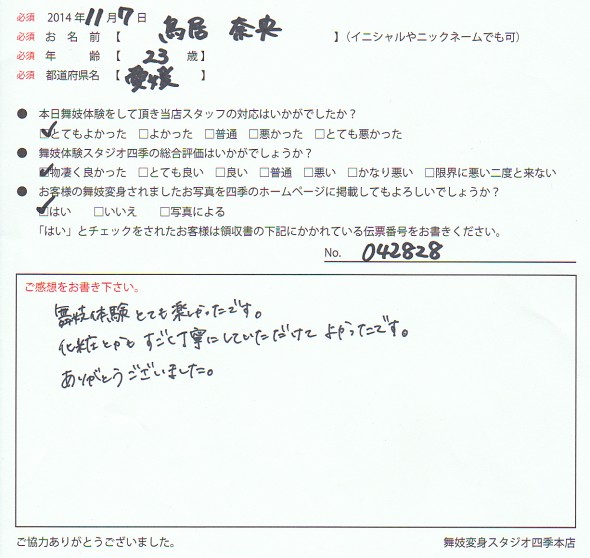 必須 2014年11月7日
必須 お 名 前【 鳥居 奈央 】(イニシャルやニックネームでも可)
必須 年 齢【 23 歳】
必須 都道府県名【 愛媛 】
● 本日舞妓体験をして頂き当店スタッフの対応はいかがでしたか？
☑とてもよかった □よかった □普通 □悪かった □とても悪かった
● 舞妓体験スタジオ四季の総合評価はいかがでしょうか？
☑物凄く良かった □とても良い □良い □普通 □悪い □かなり悪い □限界に悪い二度と来ない
● お客様の舞妓変身されましたお写真を四季のホームページに掲載してもよろしいでしょうか？
☑はい □いいえ □写真による
「はい」とチェックをされたお客様は領収書の下記にかかれている伝票番号をお書きください。
No. 042828
ご感想をお書き下さい。
舞妓体験とても楽しかったです。
化粧とかもすごく丁寧にしていただけてよかったです。
ありがとうございました。
ご協力ありがとうございました。 舞妓変身スタジオ四季本店